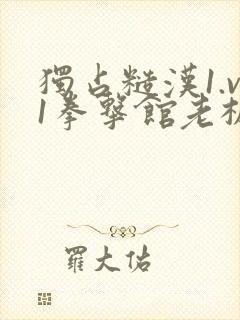 獨占糙漢1.v
1拳擊館老板
羅大佑